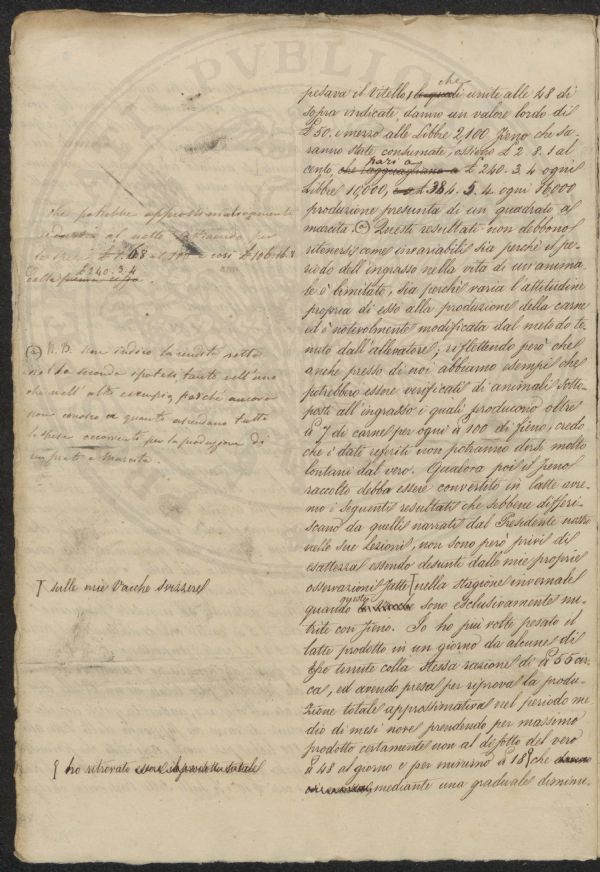 PVBLIC
pesava il Vitello, le quali che unite alle 48 di
sopra indicate, danno un valore lordo di
£ 50. e mezzo alle Libbre 2,100 fieno che sa-
ranno state consumate, ossieno £ 2. 8. 1 al
cento, che ragguagliano a pari a £ 240. 3. 4 ogni
Libbre 10,000, £ 384. 5. 4. ogni 16000
produzione presunta di un quadrato a
marcita. Questi resultati non debbono
ritenersi come invariabili sia perchè il pe-
riodo dell'ingrasso nella vita di un anima-
le è limitato, sia perchè varia l'attitudine
propria di esso alla produzione della carne
ed è notevolmente modificata dal metodo te-
nuto dall'allevatore; riflettendo però che
anche presso di noi abbiamo esempi che
potrebbero essere verificati di animali sotto-
posti all'ingrasso i quali producono oltre
a 7 di carne per ogni 100 di fieno, credo
che i dati referiti non potranno dirsi molto
lontani dal vero. Qualora poi il fieno
raccolto debba essere convertito in latte avre-
mo i seguenti resultati che sebbene differi-
scano da quelli narrati dal Presidente nostro
nelle sue Lezioni, non sono però privi di
esattezza essendo desunti dalle mie proprie
osservazioni fatte nella stagione invernale
quando le Vacche queste sono esclusivamente nu-
trite con fieno. Io ho più volte pesato il
latte prodotto in un giorno da alcune di
esse tenute colla stessa razione di 55 cir-
ca, ed avendo presa per riprova la produ-
zione totale approssimativa nel periodo me-
dio di mesi nove prendendo per massimo
prodotto certamente non al disotto del vero
48 al giorno e per minimo 18 che
mediante una graduale diminu-
che potrebbe approssimativamente
al netto
£ 106. 16. 8
dalla £ 240. 3. 4
N. B. Non indico la rendita netta
nella seconda ipotesi tanto nell'uno
che nell'altro esempio, poichè ancora
non conosco a quanto ascendano tutte
le spese occorrenti per la produzione di
un prato a Marcita.
sulle mie Vacche Svizzere
ho ritrovato essere il prodotto totale